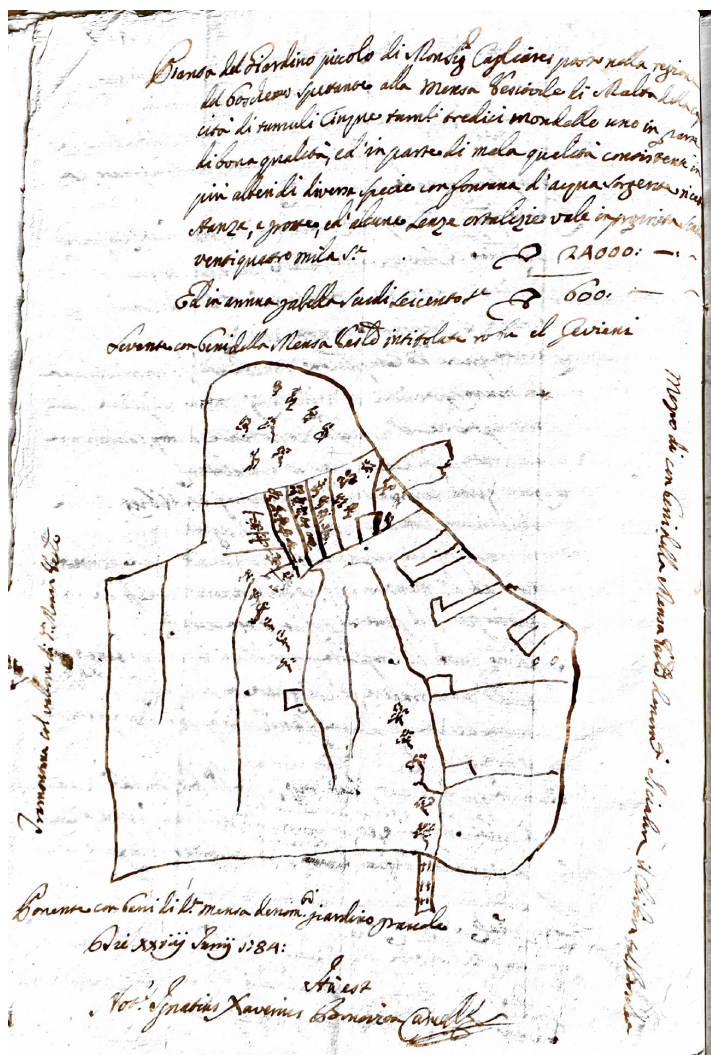 Pianta del Giardino piccolo di Monsig.r Cagliares posto nella regione
del Boschetto spettante alla Mensa Vescovile di Malta della
cità di tumuli Cinque tumᵗⁱ tredici mondelle uno in parte
di bona qualità, ed' in parte di mala qualità consistente in
più alberi di diversa specie con fontana d'acqua sorgente
stanza, e grotte, ed' alcune Lenze ortalizie vale in proprietà
ventiquatro mila S.ⁱ 24000:
Ed in annua gabella scudi seicento S.ⁱ 600:
Levente con beni della Mensa Vesᶫᵉ intitolate ta el Gevieni
Mezzo di con beni della Mensa Vesᶫᵉ
Tramontana col vallone di d.ª Mensa
Ponente con beni di d.ª mensa denom.ᵗⁱ giardino
Die XXViij Junij 1784:
Ita est
Not.ʳ Ignatius Xaverius Bonavita